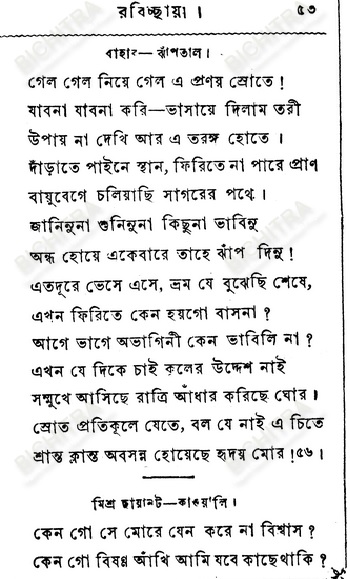 রবিচ্ছায়া। ৫৩
বাহার— ঝাঁপতাল।
গেল গেল নিয়ে গেল এ প্রণয় স্রোতে!
যাবনা যাবনা করি—ভাসায়ে দিলাম তরী
উপায় না দেখি আর এ তরঙ্গ হোতে।
দাঁড়াতে পাইনে স্থান, ফিরিতে না পারে প্রাণ
বায়ুবেগে চলিয়াছি সাগরের পথে।
জানিনুনা শুনিনুনা কিছুনা ভাবিনু
অন্ধ হোয়ে একেবারে তাহে ঝাঁপ দিনু!
এতদূরে ভেসে এসে, ভ্রম যে বুঝেছি শেষে,
এখন ফিরিতে কেন হয়গো বাসনা?
আগে ভাগে অভাগিনী কেন ভাবিলি না?
এখন যে দিকে চাই কূলের উদ্দেশ নাই
সম্মুখে আসিছে রাত্রি আঁধার করিছে ঘোর।
স্রোত প্রতিকূলে যেতে, বল যে নাই এ চিতে
শ্রান্ত ক্লান্ত অবসন্ন হোয়েছে হৃদয় মোর!৫৬।
মিশ্র ছায়ানট—কাওয়ালি।
কেন গো সে মোরে যেন করে না বিশ্বাস?
কেন গো বিষণ্ন আঁখি আমি যবে কাছে থাকি?
BICHITRA